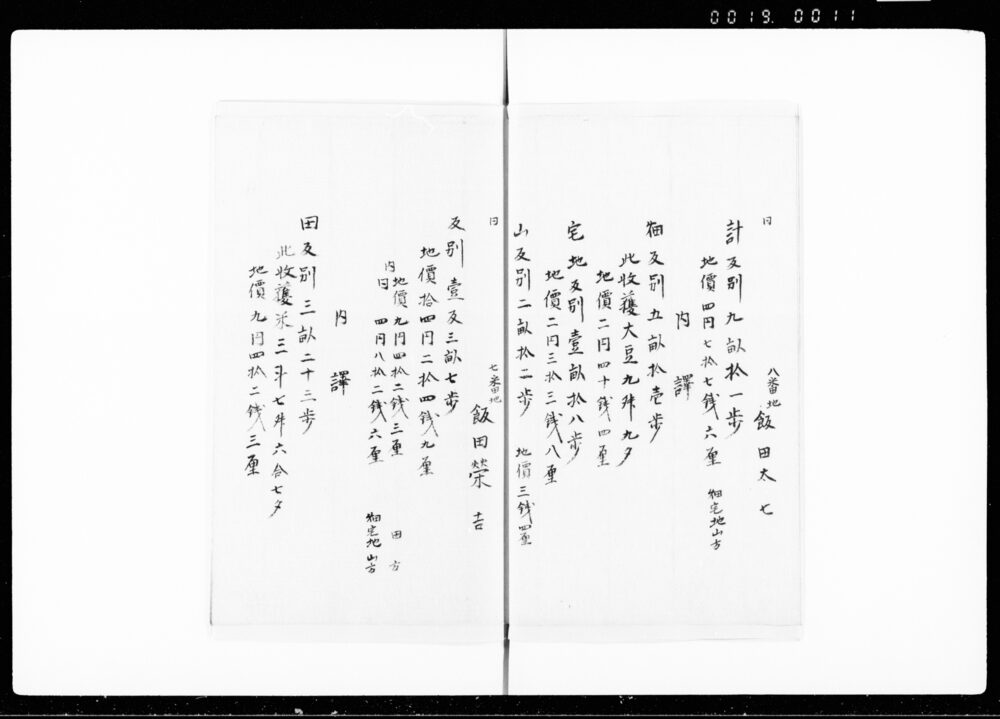 0019. 0011
同 八番地 飯田太七
計反別九畝拾一歩
地價四円七拾七銭六厘 畑宅地山方
内譯
畑反別五畝拾壱歩
此收穫大豆九舛九夕
地價二円四十銭四厘
宅地反別壹畝拾八歩
地價二円三拾三銭八厘
山反別二畝拾二歩 地價三銭四厘
同 七番地 飯田榮吉
反別壹反三畝七歩
地價拾四円二拾四銭九厘
内 地價九円四拾二銭三厘 田方
同 四円八拾二銭六厘 畑宅地山方
内譯
田反別三畝二十三歩
此收穫米三斗七舛六合七夕
地價九円四拾二銭三厘